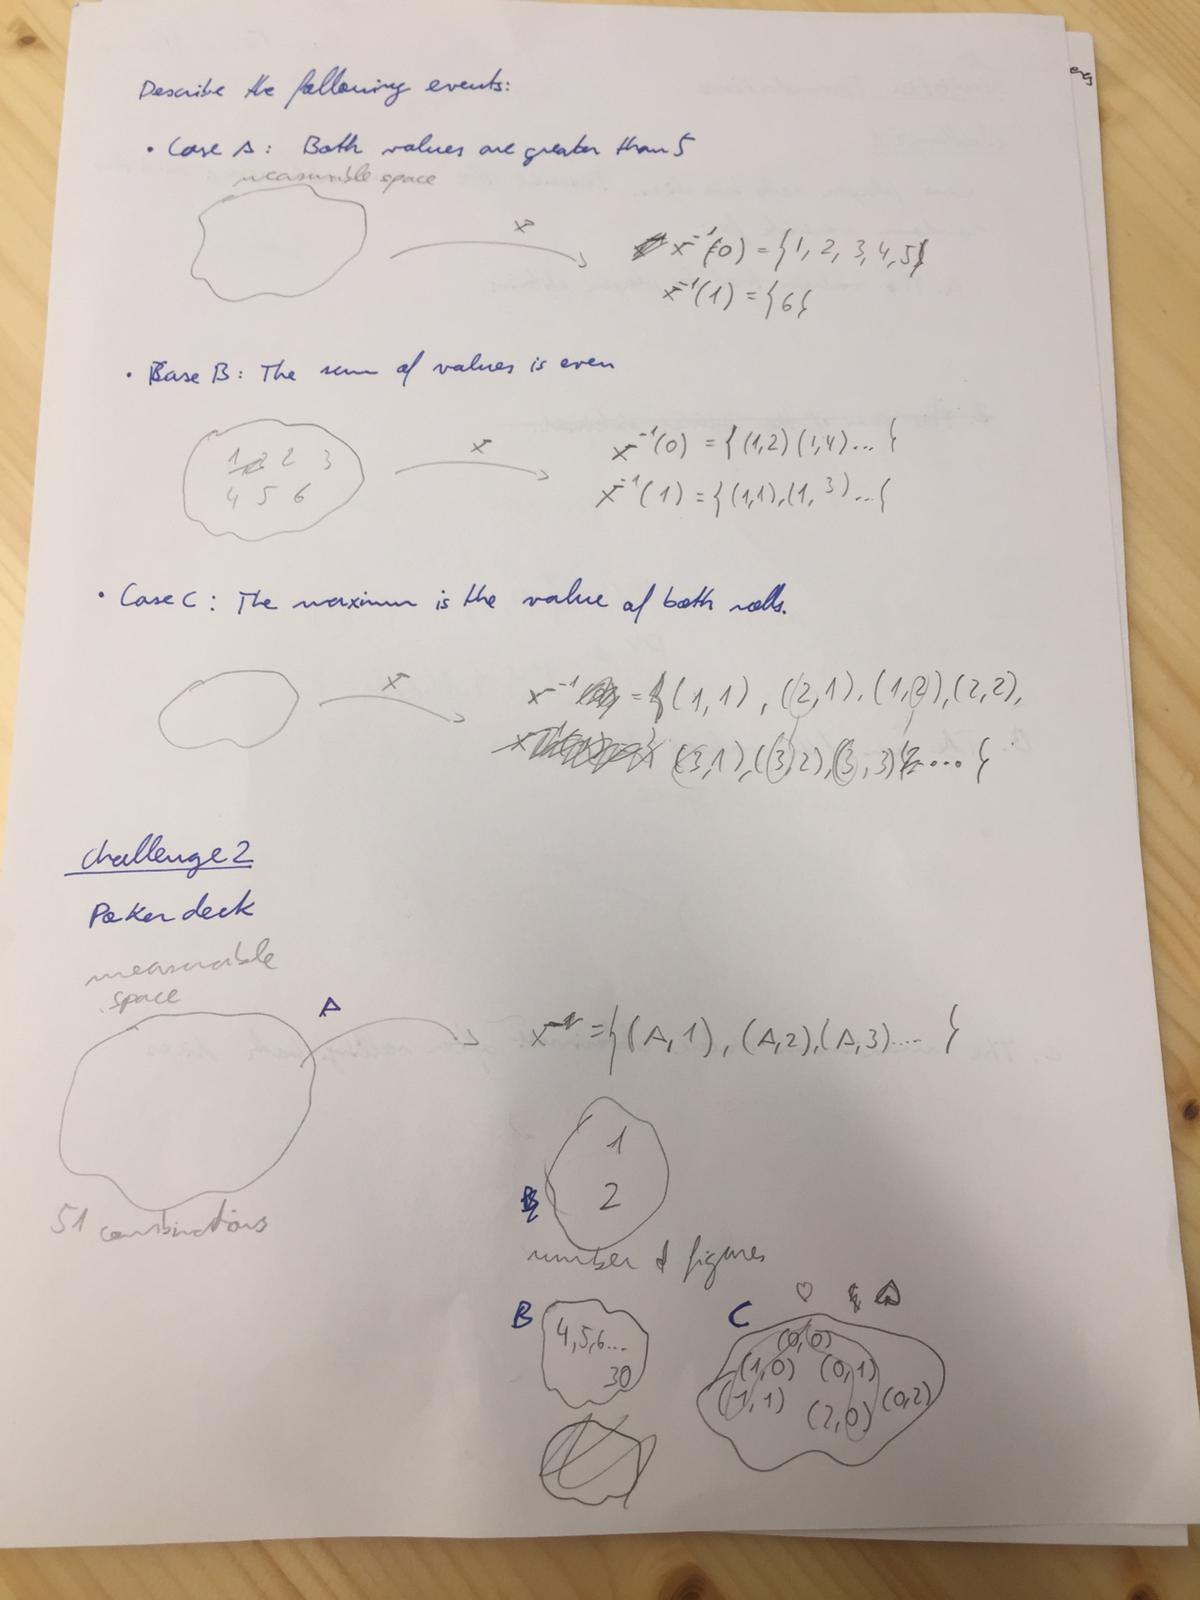 Describe the following events:
• Case A: Both values are greater than 5
measurable space
x
x⁻¹(0) = {1, 2, 3, 4, 5}
x⁻¹(1) = {6}
• Case B: The sum of values is even
1 2 3
4 5 6
x
x⁻¹(0) = {(1,2) (1,4)... }
x⁻¹(1) = {(1,1), (1, 3)...}
• Case C: The maximum is the value of both rolls.
x
x⁻¹ = {(1,1), (2,1), (1,2), (2,2),
(3,1), (3,2), (3,3) ... }
challenge 2
Poker deck
measurable
space
A
x⁻¹ = {(A,1), (A,2), (A,3).... }
51 combinations
1
2
number of figures
B
4,5,6...
30
C
♡ ♠
(0,0)
(1,0) (0,1)
(1,1) (2,0) (0,2)